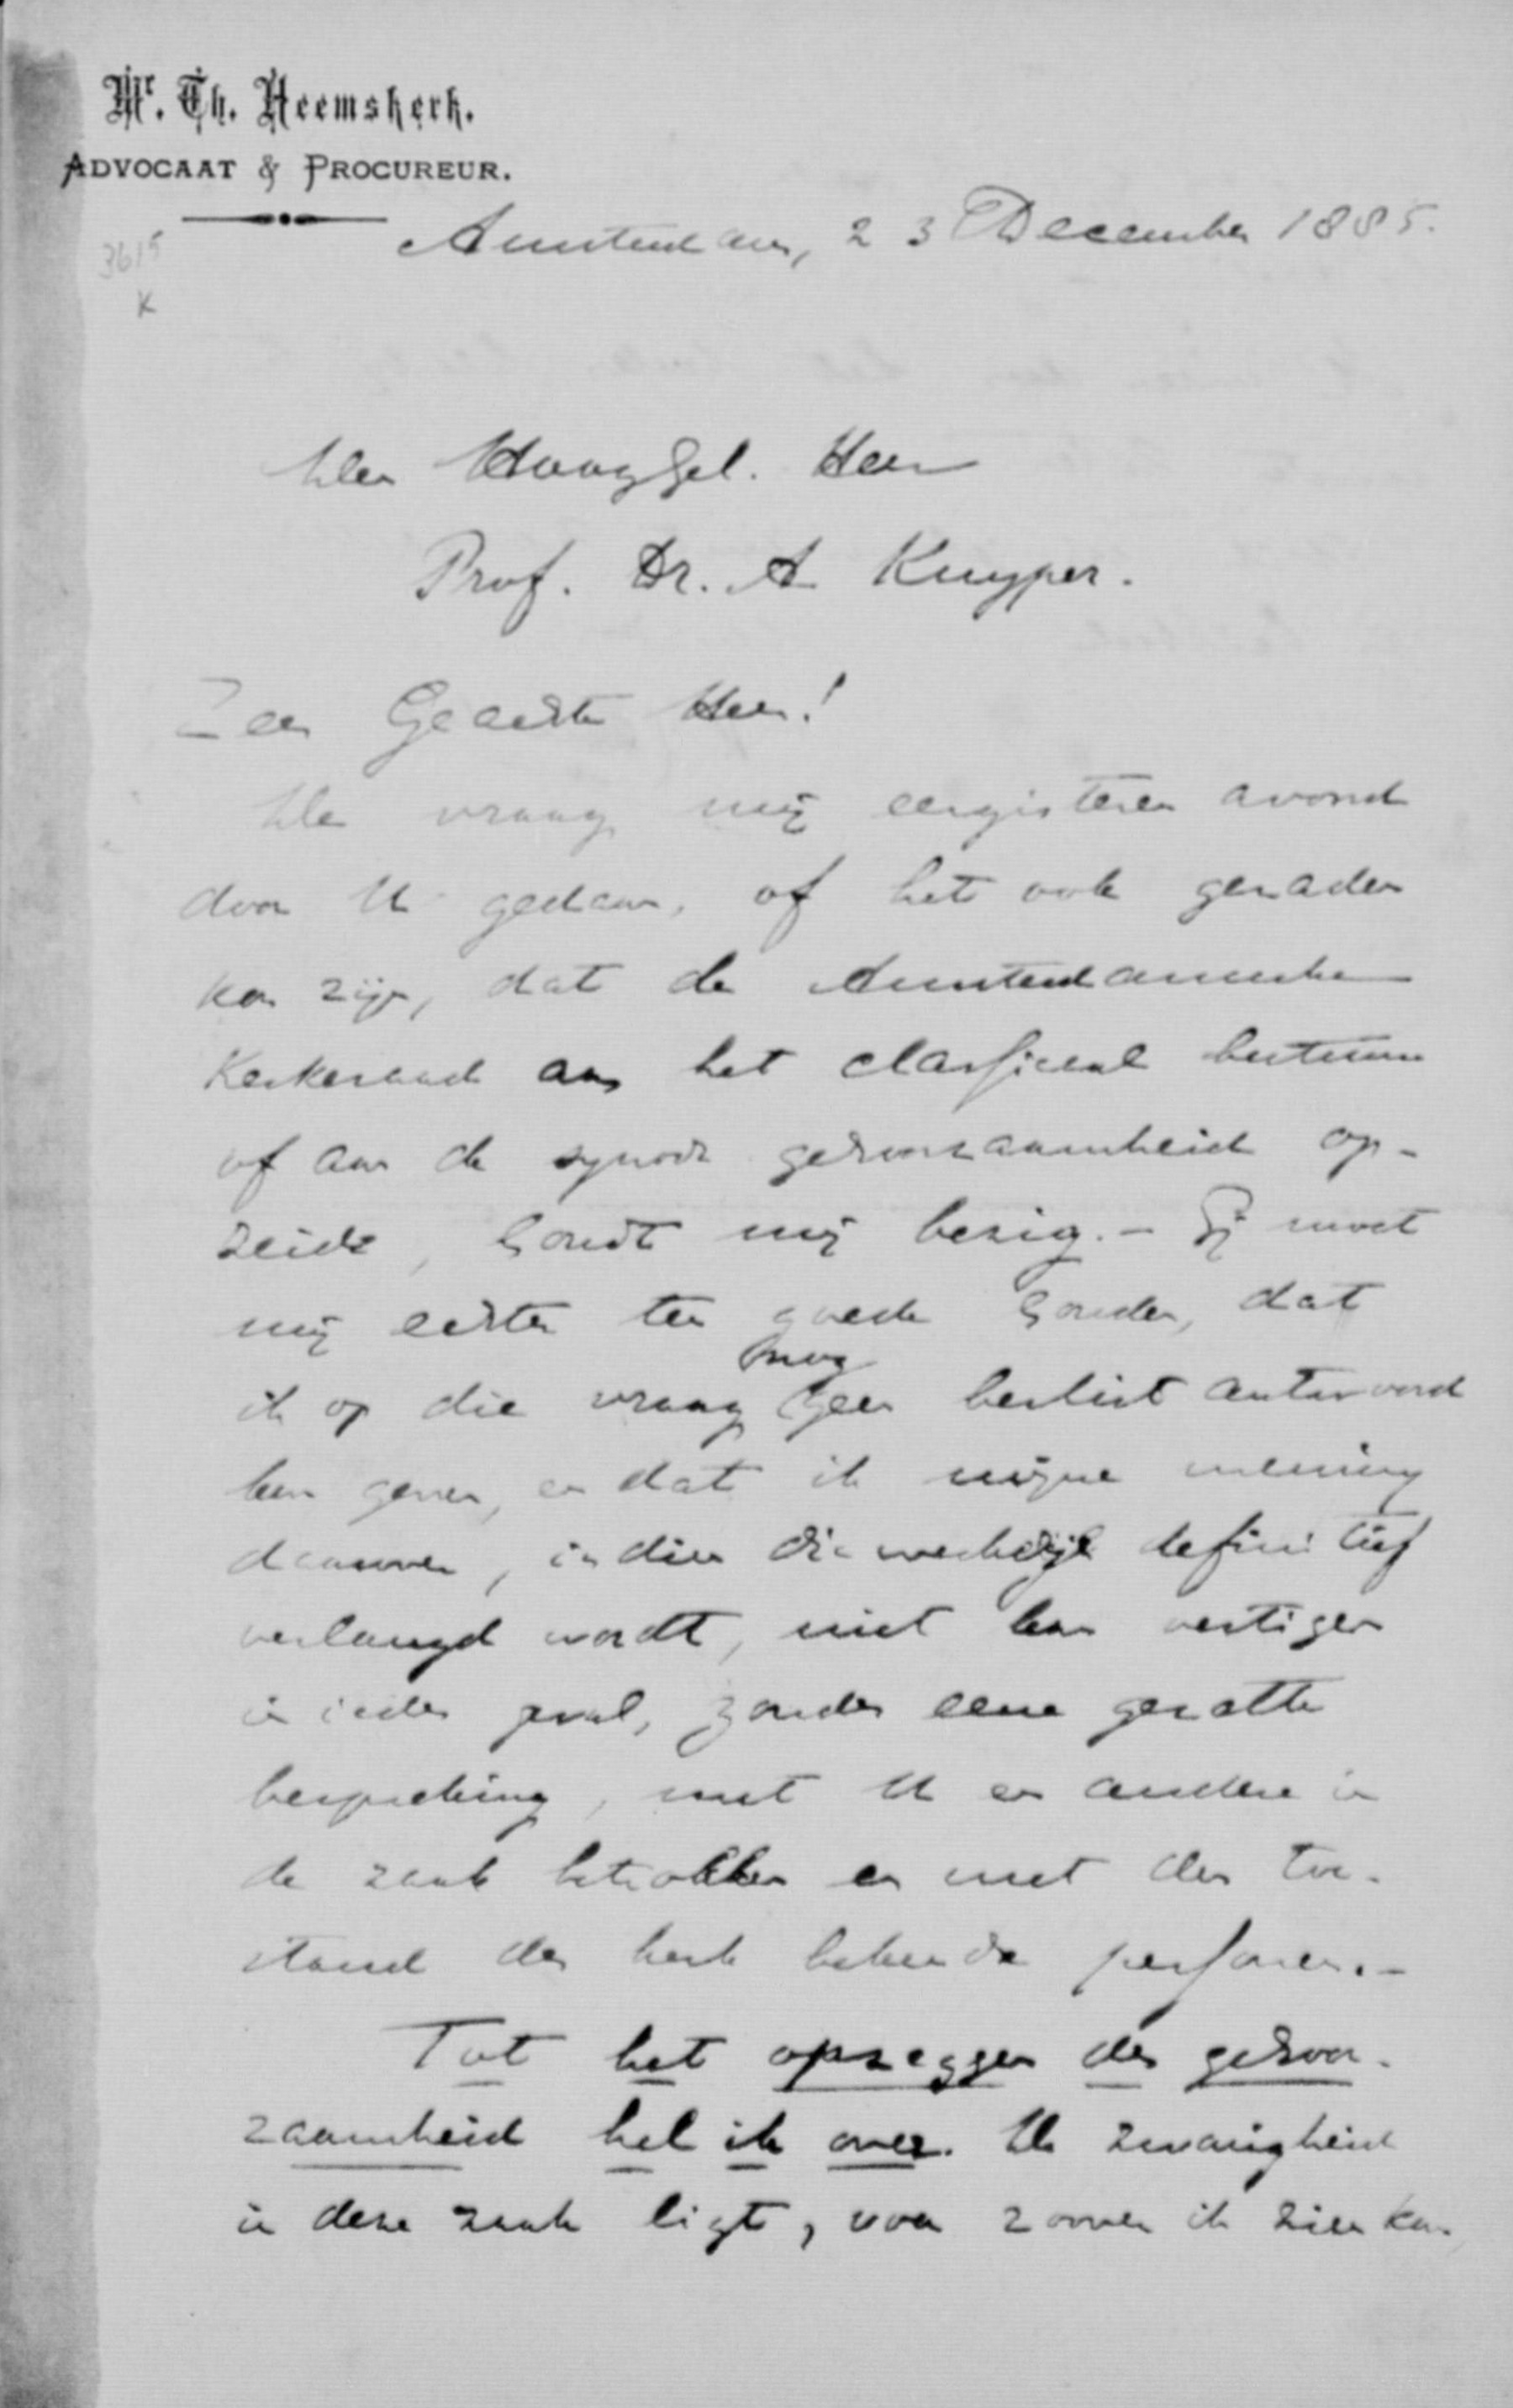 Mr. Th. Heemskerk.
ADVOCAAT & PROCUREUR.
Amsterdam, 23 December 1885.
3615
K
Den HoogGel. Heer
Prof. Dr. A Kuyper.
Zeer Geachte Heer!
De vraag mij eergisteren avond
door U gedaan, of het ook geraden
kon zijn, dat de Amsterdamsche
Kerkeraad aan het classicaal bestuur
of aan de synode gehoorzaamheid op-
zeide, houdt mij bezig. - Gij moet
mij echter ten goede houden, dat
nog
ik op die vraag geen beslist antwoord
kan geven, en dat ik mijne meening
daarover, indien die werkelijk definitief
verlangd wordt, niet kan vestigen
in ieder geval, zonder eene gezette
bespreking, met U en andere in
de zaak betrokken en met den toe-
stand der kerk bekende personen. -
Tot het opzeggen der gehoor-
zaamheid hel ik over. De zwarigheid
in deze zaak ligt, voor zoover ik zien kan,